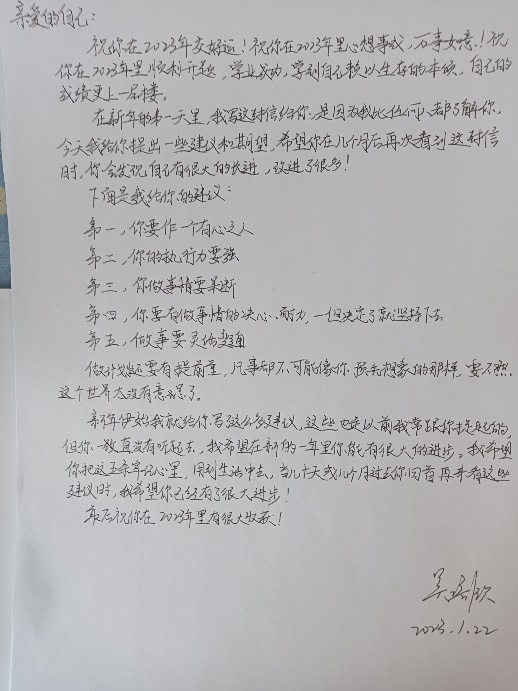 亲爱的自己:
祝你在2023年交好运!祝你在2023年里心想事成,万事如意!祝
你在2023年里顺利开起,学业成功,学到自己赖以生存的本领,自己的
成绩更上一层楼。
在新年的第一天里,我写这封信给你,是因为我比任何人都了解你。
今天我给你提出一些建议和期望,希望你在几个月后再次看到这封信
时,你会发现自己有很大的长进,改进了很多!
下面是我给你的建议:
第一,你要作一个有心之人
第二,你的执行力要强
第三,你做事情要果断
第四,你要有做事情的决心、耐力,一但决定了就坚持下去
第五,做事要灵活变通
做计划还要有提前量,凡事都不可能像你预先想象的那样,要不然
这个世界太没有意思了。
新年伊始我就给你写了这么多建议,这些也是以前我常跟你提起的,
但你一致直没有听起去,我希望在新的一年里你能有很大的进步。我希望
你把这五条牢记心里,用到生活中去,当几十天或几个月过去你回首再来看这些
建议时,我希望你已经有了很大进步!
最后祝你在2023年里有很大收获!
2023.1.22